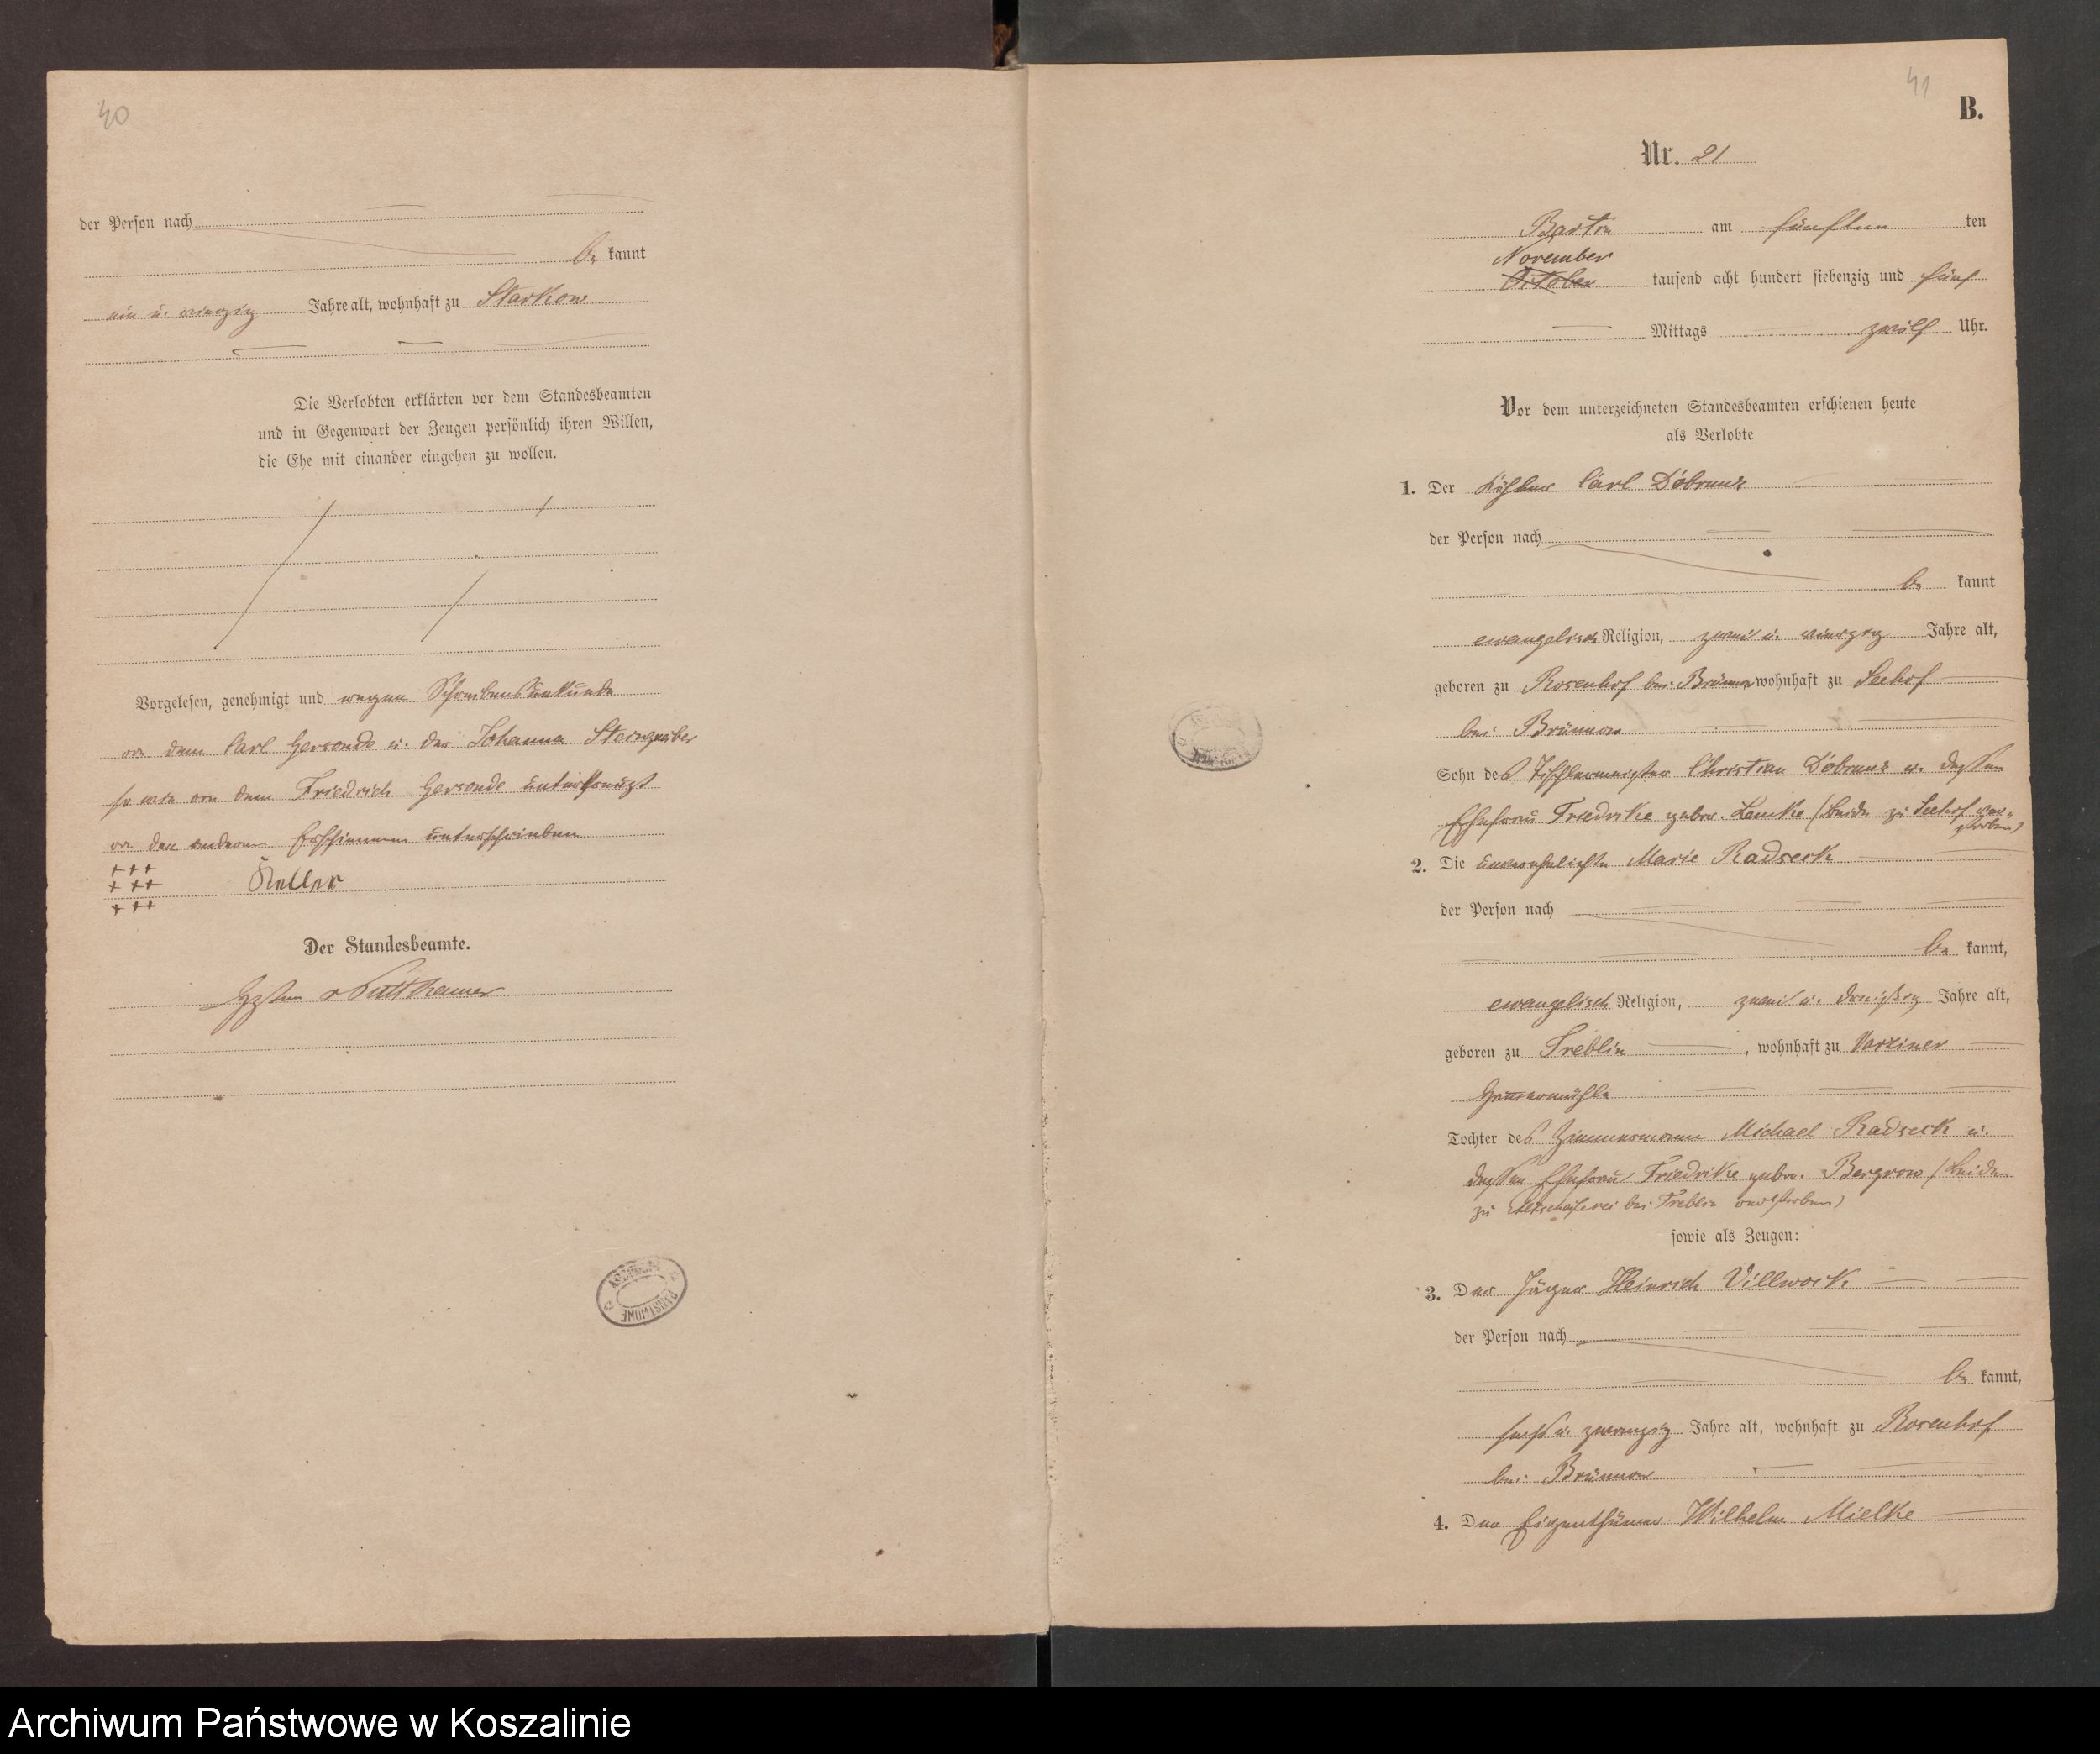 40
der Person nach
be kannt
ein u. vierzig Jahre alt, wohnhaft zu Starkow
Die Verlobten erklärten vor dem Standesbeamten
und in Gegenwart der Zeugen persönlich ihren Willen,
die Ehe mit einander eingehen zu wollen.
Vorgelesen, genehmigt und wegen Schreibensunkunde
von dem Carl Gersonde u. der Johanna Steingräber
so wie von dem Friedrich Gersonde unterkreuzt
von den anderen Erschienenen unterschrieben
+++
+++ Keller
+++
Der Standesbeamte.
v Puttkamer
ARCHIWUM PAŃSTWOWE
41
B.
Nr. 21
Bartin am fünften ten
November
October tausend acht hundert siebenzig und fünf
Mittags zwölf Uhr.
Vor dem unterzeichneten Standesbeamten erschienen heute
als Verlobte
1. Der Tischler Carl Döbrunz
der Person nach
be kannt
evangelisch Religion, zwei u. vierzig Jahre alt,
geboren zu Rosenhof bei Brünnow wohnhaft zu Seehof
bei Brünnow
Sohn des Tischlermeister Christian Döbrunz u. dessen
Ehefrau Friedrike gebor. Lemke (beide zu Seehof ver-
storben)
2. Die unverehelichte Marie Radseck
der Person nach
be kannt,
evangelisch Religion, zwei u. dreißig Jahre alt,
geboren zu Treblin, wohnhaft zu Varziner
Hammermühle
Tochter des Zimmermann Michael Radseck u.
dessen Ehefrau Friedrike gebor. Bergrow (beide
zu bei Treblin verstorben)
sowie als Zeugen:
3. Der Jäger Heinrich Villwock
der Person nach
be kannt,
sechs u. zwanzig Jahre alt, wohnhaft zu Rosenhof
bei Brünnow
4. Der Eigenthümer Wilhelm Mielke
Archiwum Państwowe w Koszalinie